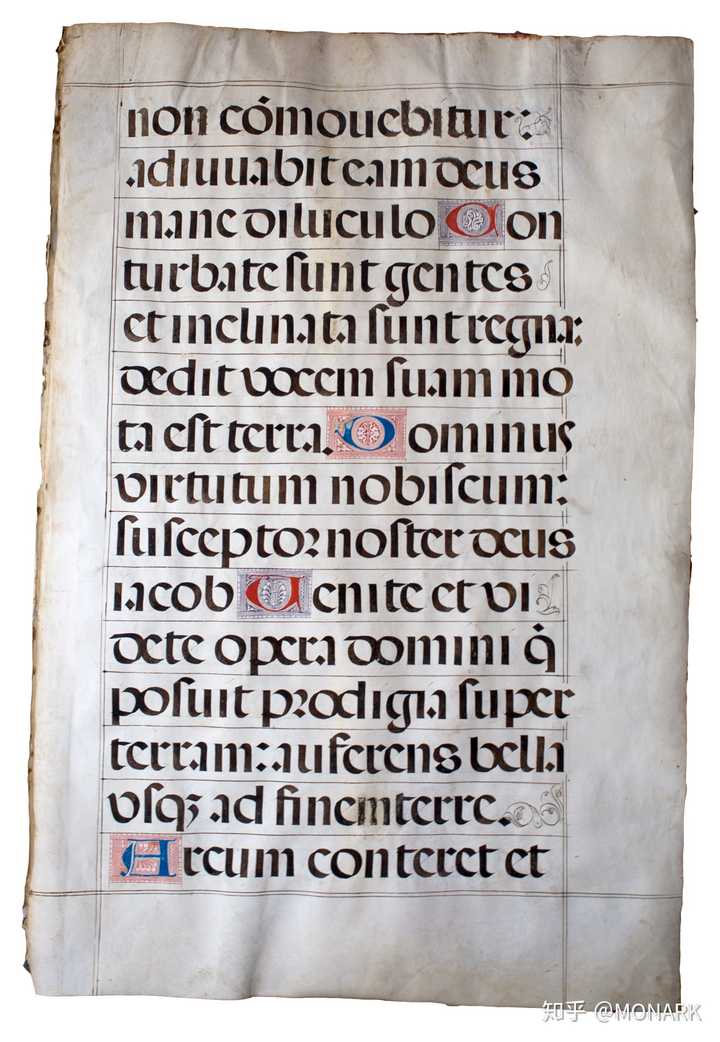 non cómouebitur:
adiuuabit eam deus
mane diluculo Con
turbate sunt gentes
et inclinata sunt regna:
dedit uocem suam mo
ta est terra. Dominus
uirtutum nobiscum:
susceptor noster deus
iacob Uenite et vi
dete opera domini q̇
posuit prodigia super
terram: auferens bella
vsqꝫ ad finem terre.
Arcum conteret et
知乎 @MONARK